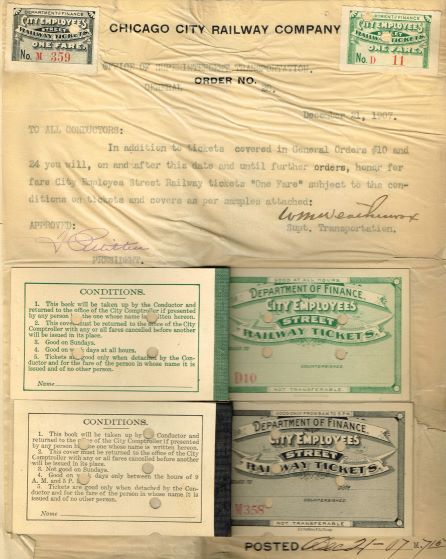 CHICAGO CITY RAILWAY COMPANY
DEPARTMENT OF FINANCE
CITY EMPLOYEES
STREET
RAILWAY TICKETS.
ONE FARE.
No. M 359
CITY EMPLOYEES
STREET
RAILWAY TICKETS.
ONE FARE.
No. D 11
OFFICE OF SUPERINTENDENT TRANSPORTATION.
ORDER NO.
GENERAL
December 21, 1907.
TO ALL CONDUCTORS:
In addition to tickets covered in General Orders #10 and
24 you will, on and after this date and until further orders, honor for
fare City Employes Street Railway tickets "One Fare" subject to the con-
ditions on tickets and covers as per samples attached:
Supt. Transportation.
APPROVED:
PRESIDENT.
CONDITIONS.
1. This book will be taken up by the Conductor and
returned to the office of the City Comptroller if presented
by any person the one whose name is written hereon.
2. This cover must be returned to the office of the City
Comptroller with any or all fares cancelled before another
will be issued in its place.
3. Good on Sundays.
4. Good at all hours.
5. Tickets good only when detached by the Con-
ductor and for the fare of the person in whose name it is
issued and of no other person.
Name
GOOD AT ALL HOURS
DEPARTMENT OF FINANCE.
CITY EMPLOYEES
STREET
RAILWAY TICKETS.
COUNTERSIGNED
D10
NOT TRANSFERABLE
CONDITIONS.
1. This book will be taken up by Conductor and
returned to the office of the City Comptroller if presented
by any person the one whose name is written hereon.
2. This cover must be returned to the office of the City
Comptroller with any or all fares cancelled before another
will be issued in its place.
3. Not good on Sundays.
4. Good days only between the hours of 9
A. M. and 5 P.
5. Tickets are good only when detached by the Con-
ductor and for the fare of the person in whose name it is
issued and of no other person.
Name
DEPARTMENT OF FINANCE.
CITY EMPLOYEES
STREET
RAILWAY TICKETS.
COUNTERSIGNED
M358
NOT TRANSFERABLE
POSTED Dec 21-07